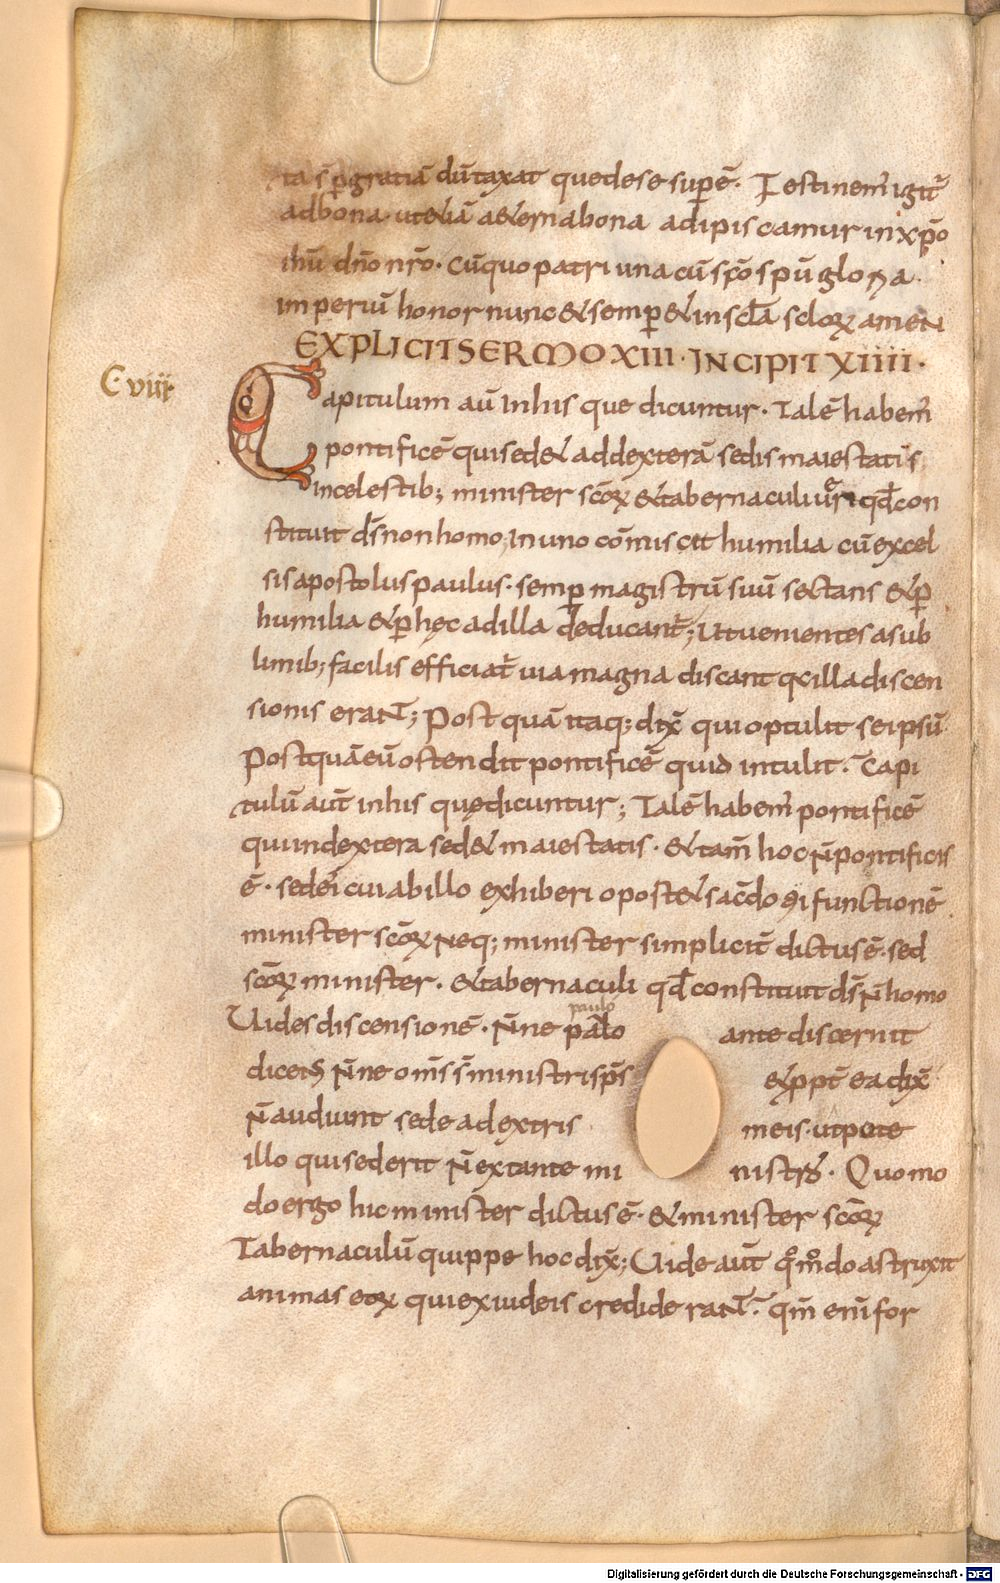 ta s̄ p̱gratiā dūtaxat quedese supē. Festinem᾽ igit᾽
adbona. ut&iā a&ernabona adipiscamur inxp̄o
ihū dn̄o nr̄o. Cūquo patri una cū sc̄o spū gloria.
imperiū honor nunc & semp̱ & in scl̄a scl̄oꝝ amen
EXPLICIT SERMO XIII. INCIPIT XIIII.
C viii
Capitulum aū inhis que dicuntur. Talē habem᾽
pontificē qui sed& addexterā sedis maiestatis
incelestib; minister sc̄oꝝ & tabernaculi uͤri qd̄ con
stituit ds̄ non homo; In uno cōmiscit humilia cū excel
sis apostolus paulus. semp̱ magistrū suū sectans & p̱
humilia & p̱ hęc adilla deducant᾽; Ut uenientes a sub
limib; facilis efficiat᾽ uia magna discant q̇ illa discen
sionis erant; Post quā itaq; dix̄ qui optulit seipsū
Postquā eū ostendit pontificē quid intulit. Capi
tulū aut̄ inhis quędicuntur; Talē habem᾽ pontificē
qui indextera sed& maiestatis. & tam̄ hoc n̄ pontificis
ē. sed ei᾽ cui abillo exhiberi oport& sac̄doti functionē
minister sc̄oꝝ neq; minister simplicit̄ dictus ē. sed
sc̄oꝝ minister. & tabernaculi qd̄ constituit ds̄ n̄ homo
Uides discensionē. n̄ne palo ante discernit
paulo
dicens n̄ne oms̄ s̄ ministri sps̄ & ppt̄ ea dix̄
n̄ audiunt sede adextris meis. utpote
illo qui sederit n̄ extante mi nistro. Quomo
do ergo hic minister dictus ē. & minister sc̄oꝝ
Tabernaculū quippe hoc dix̄; Uide aut̄ qͦmͦdo astruxit
animas eoꝝ qui exiudeis crediderant. qm̄ enī for
Digitalisierung gefördert durch die Deutsche Forschungsgemeinschaft - DFG